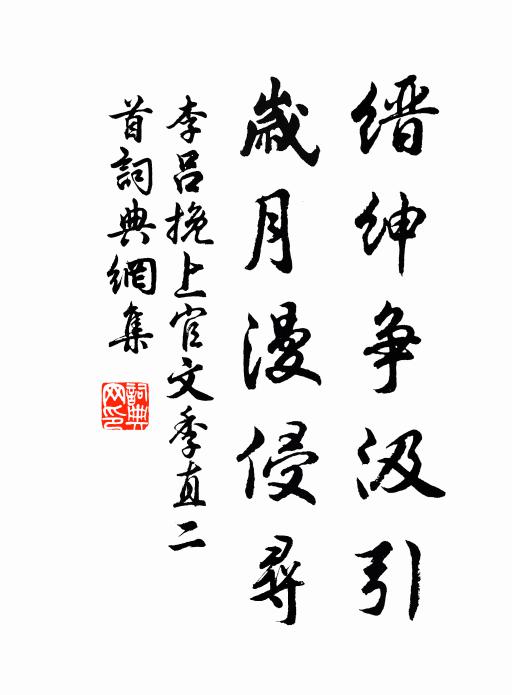 缙绅争汲引
歲月漫侵尋
李吕挽上官文季直二
首詞典網集
詞典网印